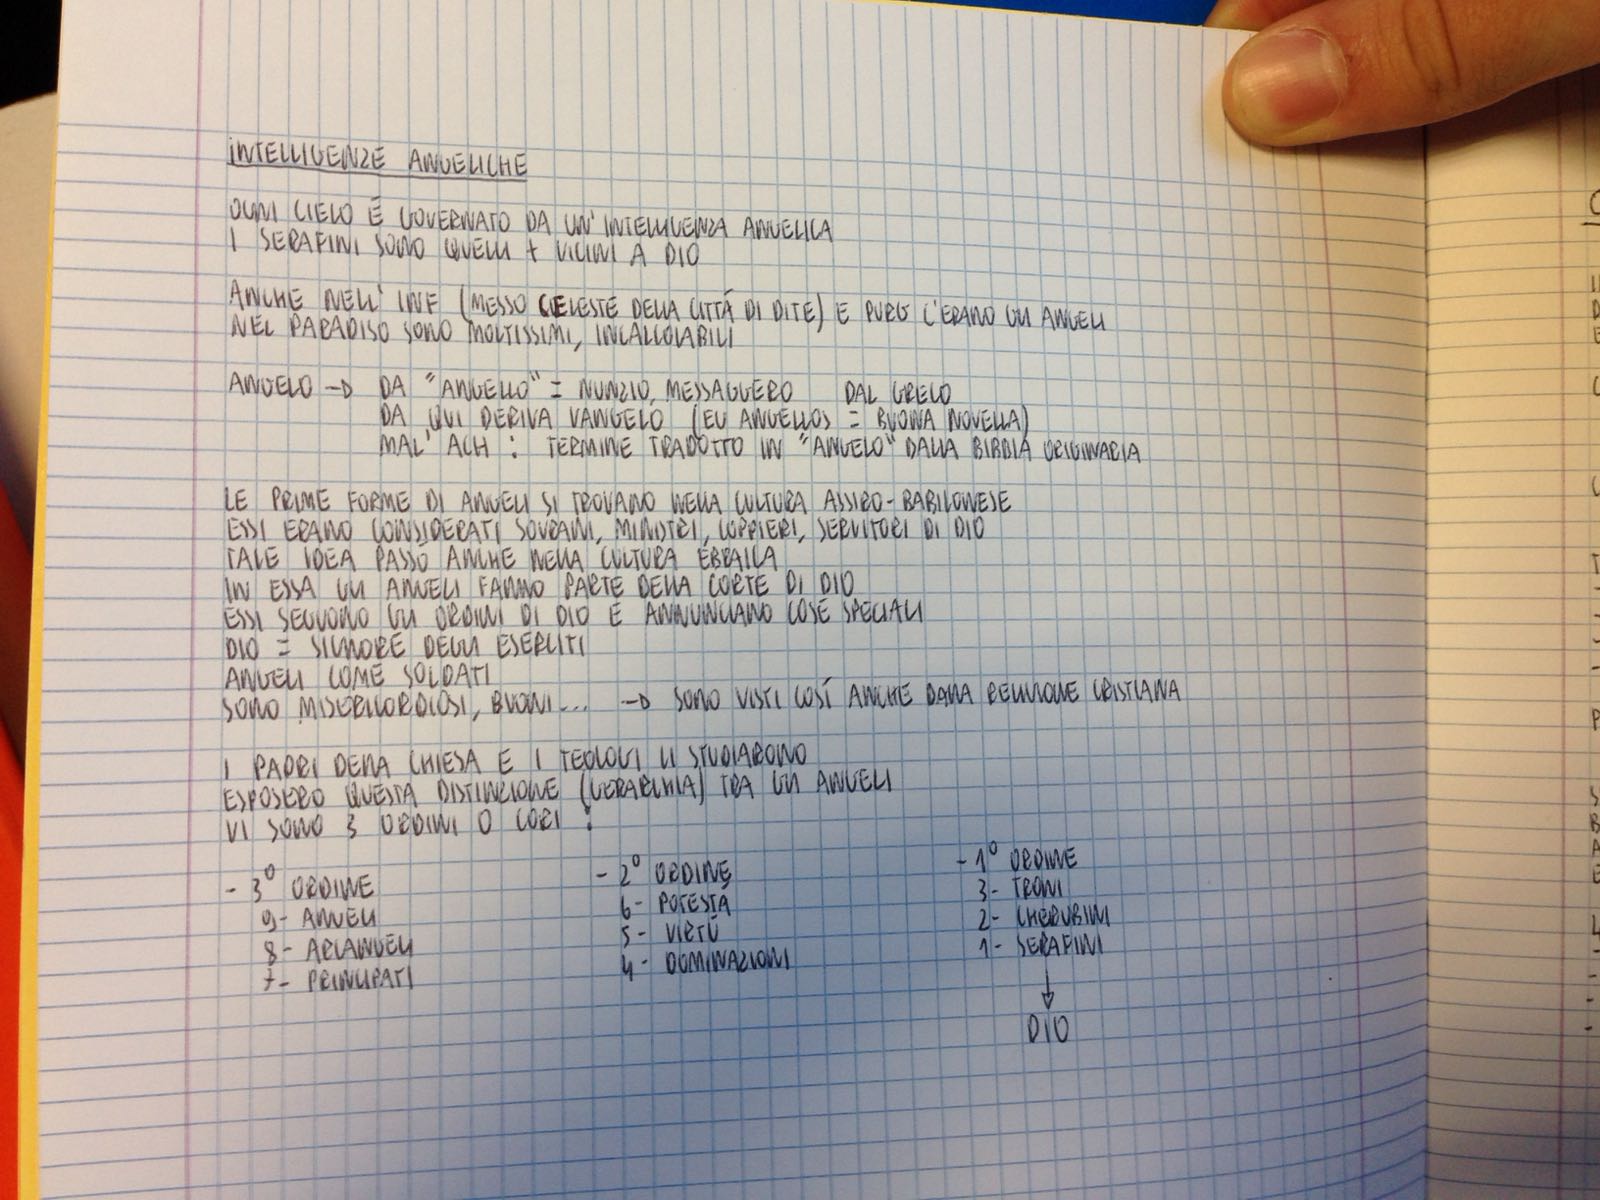 INTELLIGENZE ANGELICHE
OGNI CIELO É GOVERNATO DA UN'INTELLIGENZA ANGELICA
I SERAFINI SONO QUELLI + VICINI A DIO
ANCHE NELL'INF (MESSO CELESTE DELLA CITTÁ DI DITE) E PURG C'ERANO GLI ANGELI
NEL PARADISO SONO MOLTISSIMI, INCALCOLABILI
ANGELO → DA "ANGELLO" = NUNZIO, MESSAGGERO DAL GRECO
DA QUI DERIVA VANGELO (EU ANGELLOS = BUONA NOVELLA)
MAL'ACH : TERMINE TRADOTTO IN "ANGELO" DALLA BIBBIA ORIGINARIA
LE PRIME FORME DI ANGELI SI TROVANO NELLA CULTURA ASSIRO-BABILONESE
ESSI ERANO CONSIDERATI SOVRANI, MINISTRI, COPPIERI, SERVITORI DI DIO
TALE IDEA PASSÓ ANCHE NELLA CULTURA EBRAICA
IN ESSA GLI ANGELI FANNO PARTE DELLA CORTE DI DIO
ESSI SEGUONO GLI ORDINI DI DIO E ANNUNCIANO COSE SPECIALI
DIO = SIGNORE DEGLI ESERCITI
ANGELI COME SOLDATI
SONO MISERICORDIOSI, BUONI... → SONO VISTI COSÍ ANCHE DALLA RELIGIONE CRISTIANA
I PADRI DELLA CHIESA E I TEOLOGI LI STUDIARONO
ESPOSERO QUESTA DISTINZIONE (GERARCHIA) TRA GLI ANGELI
VI SONO 3 ORDINI O CORI :
- 3° ORDINE
9- ANGELI
8- ARCANGELI
7- PRINCIPATI
- 2° ORDINE
6- POTESTÀ
5- VIRTÚ
4- DOMINAZIONI
- 1° ORDINE
3- TRONI
2- CHERUBINI
1- SERAFINI
↓
DIO